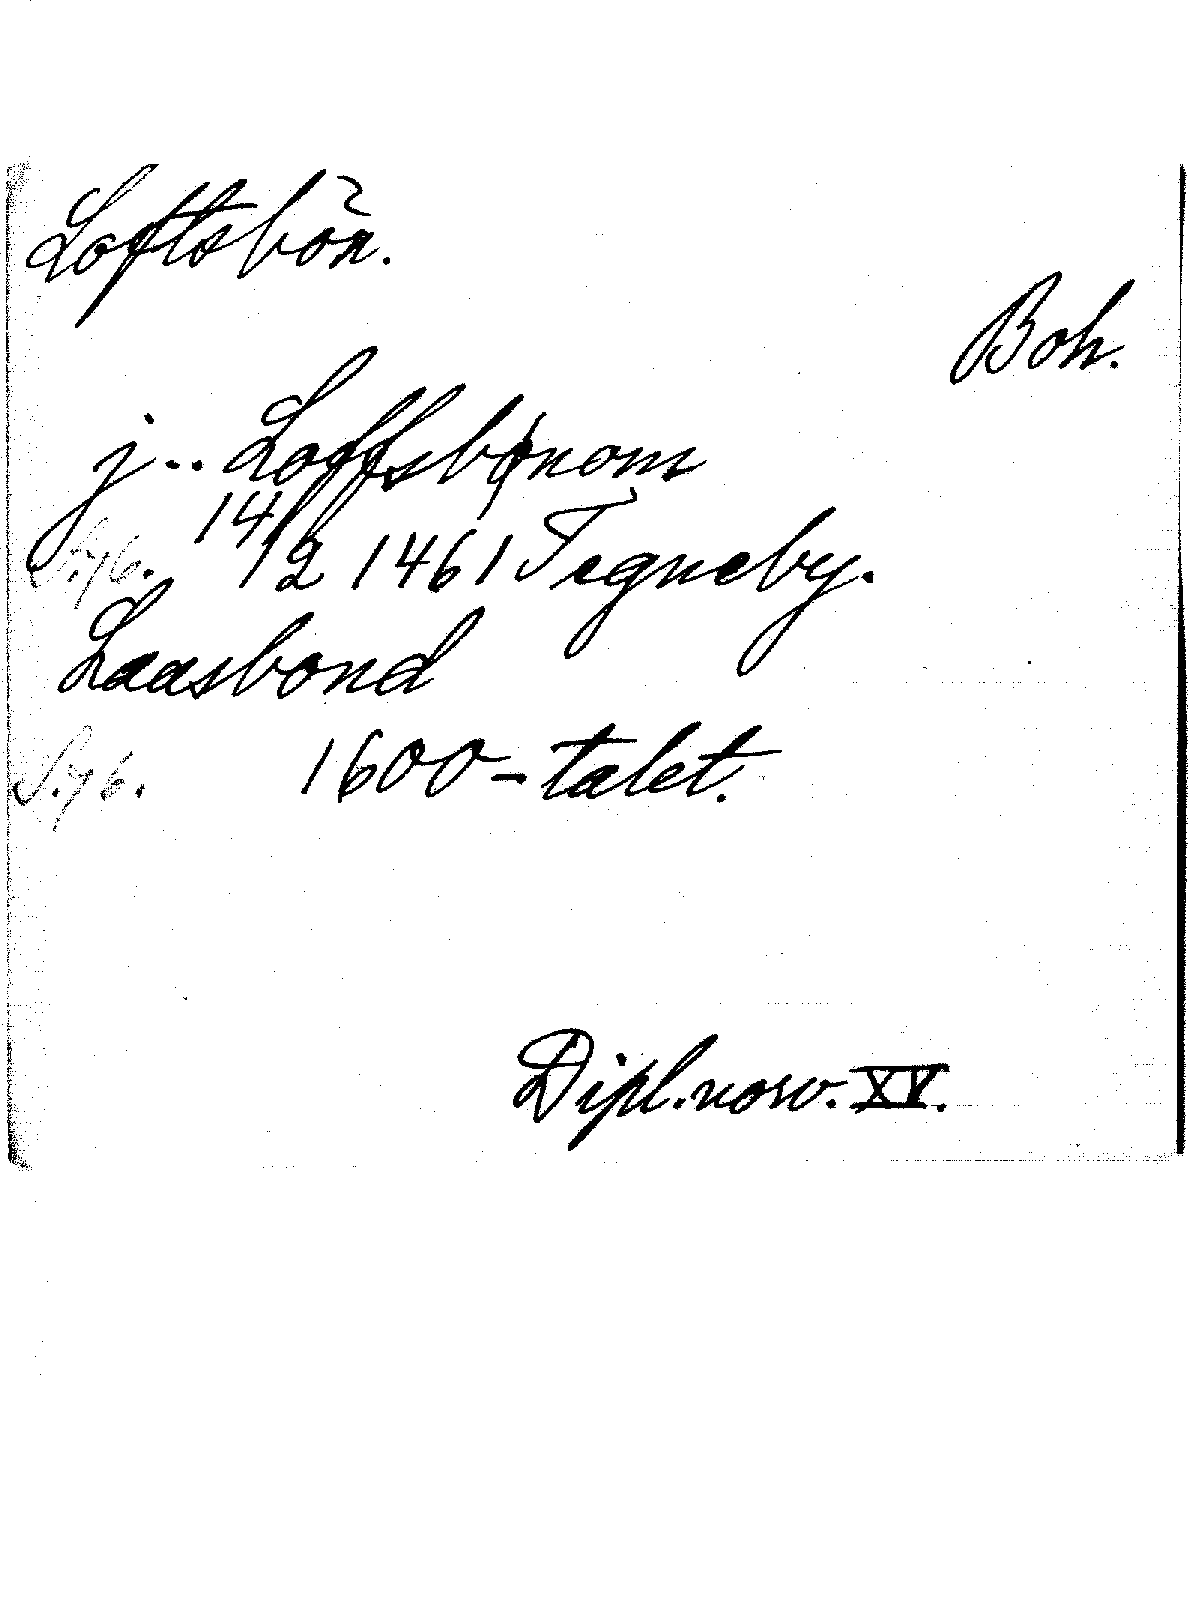 Loftsbön.
Boh.
j.. Loffsbønom
S. 76. 14/2 1461 Tegneby.
Laasbond
S. 76. 1600-talet.
Dipl. norv. XV.